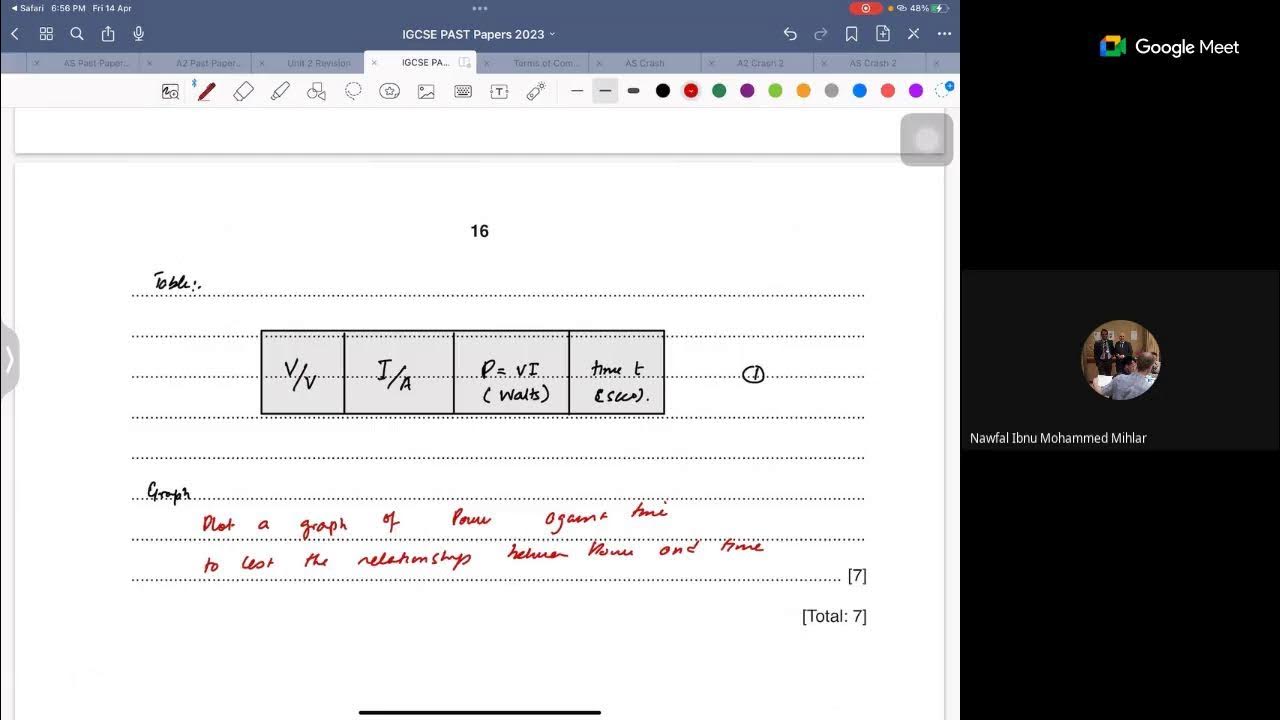 Safari 6:56 PM Fri 14 Apr 48%
IGCSE PAST Papers 2023
AS Past Paper... A2 Past Paper... Unit 2 Revision IGCSE PA... Terms of Com... AS Crash A2 Crash 2 AS Crash 2
Google Meet
16
Table:.
V/V I/A P = VI time t 1
(Watts) (secs).
Graph
Plot a graph of Power against time
to test the relationships between Power and time
[7]
[Total: 7]
Nawfal Ibnu Mohammed Mihlar